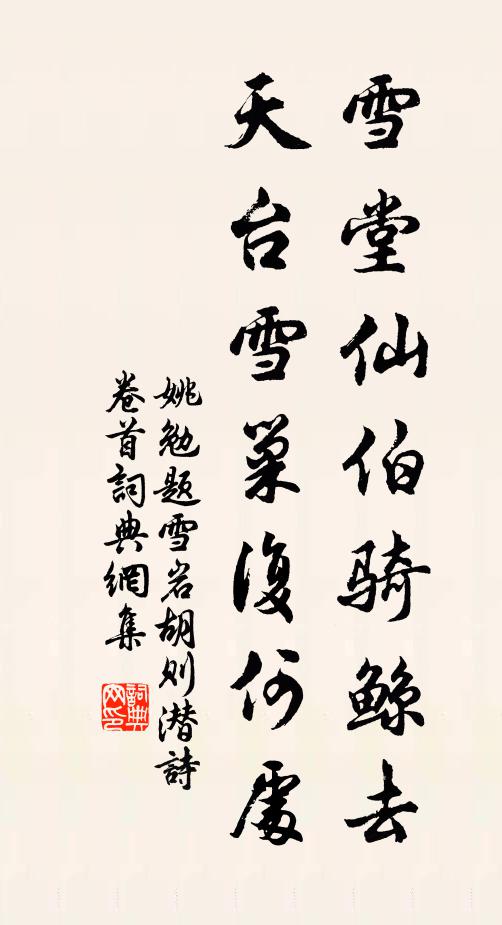 雪堂仙伯骑鲸去
天台雪巢復何處
姚勉题雪岩胡则潜詩
卷首詞典網集
詞典网印